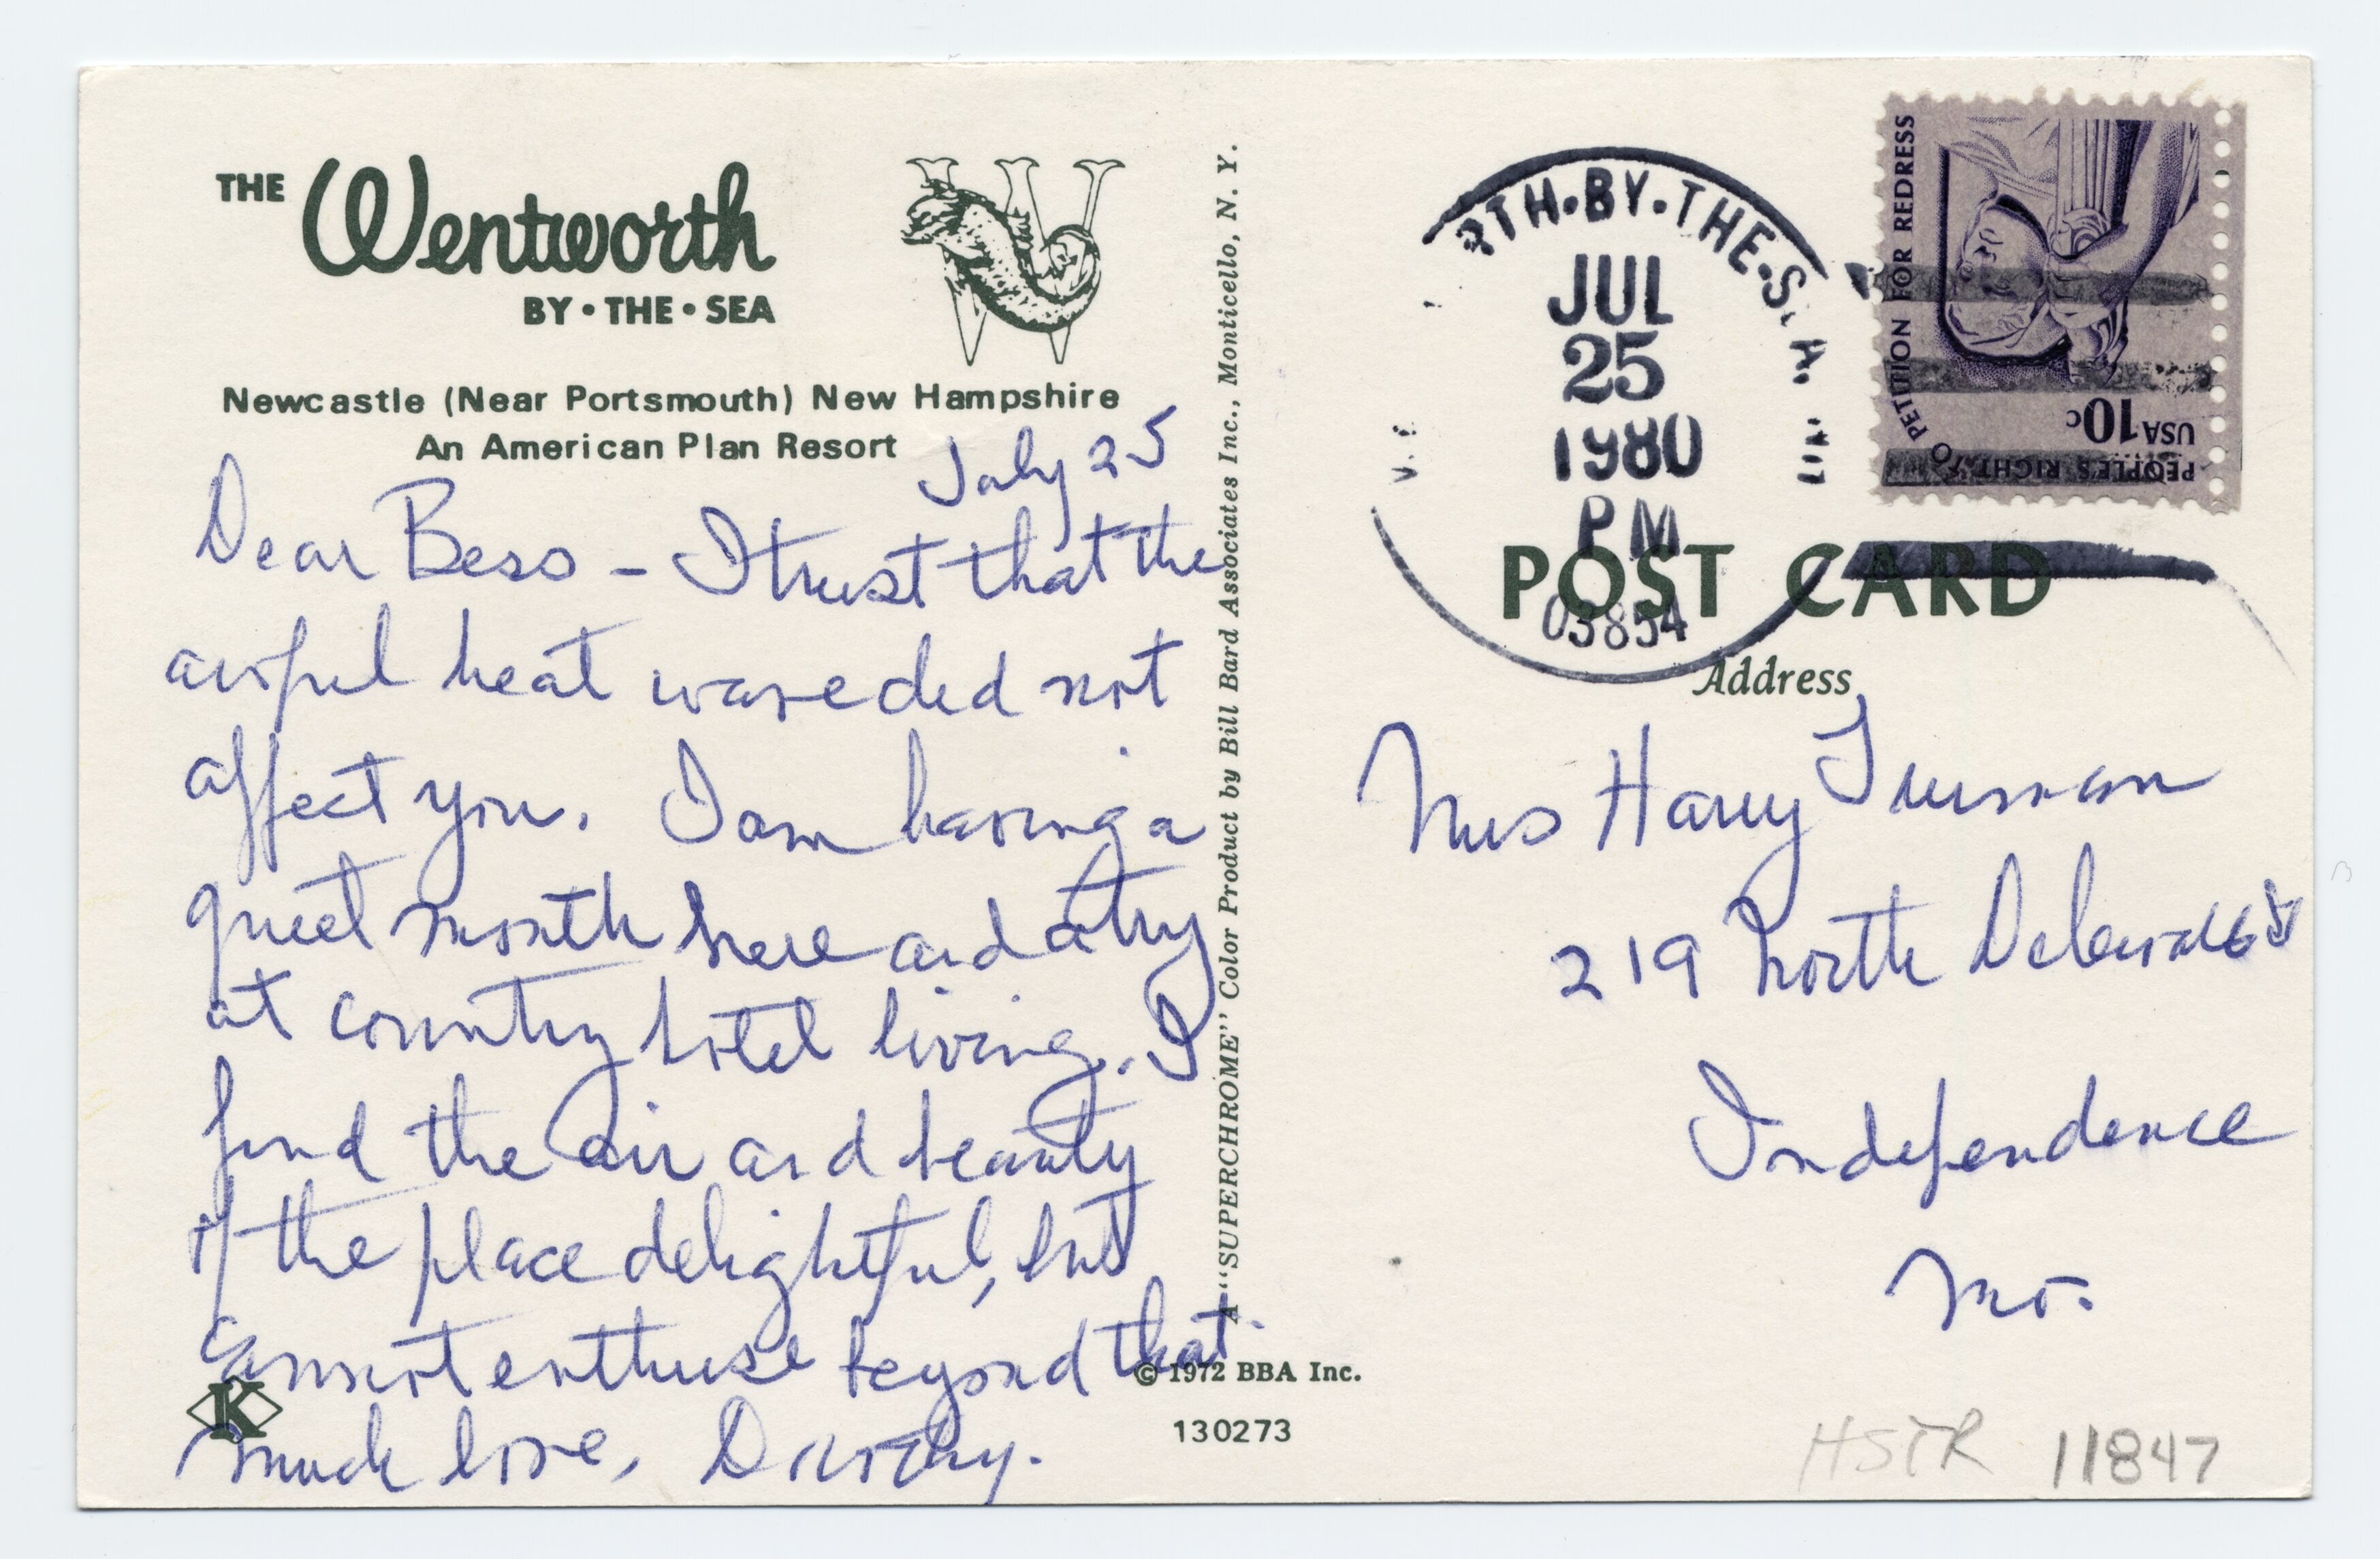 THE Wentworth
BY • THE • SEA
Newcastle (Near Portsmouth) New Hampshire
An American Plan Resort
July 25
Dear Bess - I trust that the
awful heat wave did not
affect you. I am having a
quiet month here and a try
at country hotel living. I
find the air and beauty
of the place delightful, but
cannot enthuse beyond that.
Much love, Dorothy.
K
A "SUPERCHROME" Color Product by Bill Bard Associates Inc., Monticello, N. Y.
© 1972 BBA Inc.
130273
TH·BY·THE·S
JUL
25
1980
PM
03854
PEOPLE'S RIGHT TO PETITION FOR REDRESS
USA 10c
POST CARD
Address
Mrs Harry Truman
219 North Delaware
Independence
Mo.
HSTR 11847